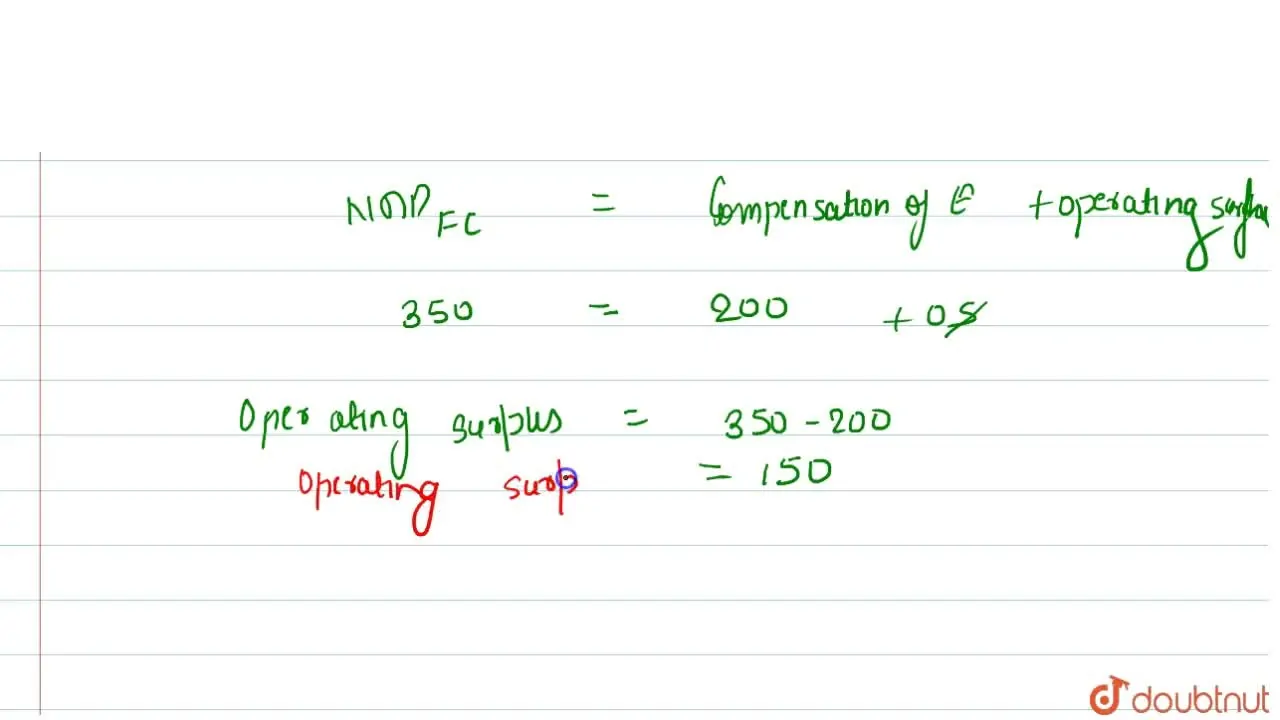 NDP FC = Compensation of E + operating surplus
350 = 200 + OS
Operating surplus = 350 - 200
= 150
Operating surp
doubtnut